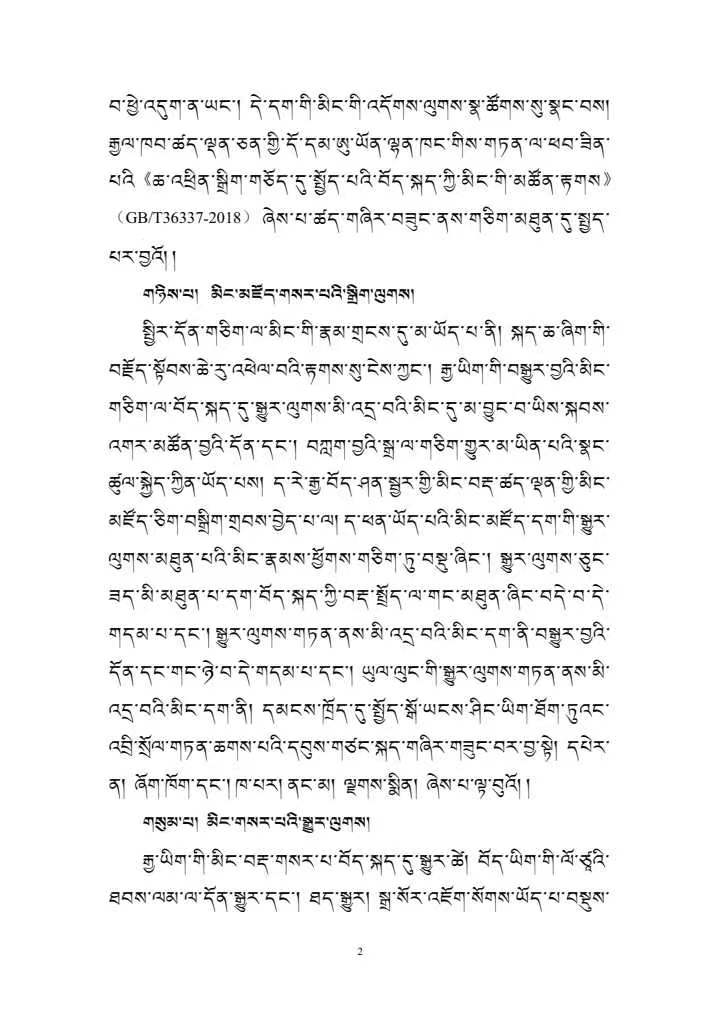 བ་ཕྱེ་འདུག་ན་ཡང་། དེ་དག་གི་མིང་གི་འདོགས་ལུགས་སྣ་ཚོགས་སུ་སྣང་བས།
རྒྱལ་ཁབ་ཚད་ལྡན་ཅན་གྱི་དོ་དམ་ཨུ་ཡོན་ལྷན་ཁང་གིས་གཏན་ལ་ཕབ་ཟིན་
པའི《ཆ་འཕྲིན་སྒྲིག་གཅོད་དུ་སྤྱོད་པའི་བོད་སྐད་ཀྱི་མིང་གི་མཚོན་རྟགས》
（GB/T36337-2018）ཞེས་པ་ཚད་གཞིར་བཟུང་ནས་གཅིག་མཐུན་དུ་སྤྱད་
པར་བྱའོ། །
གཉིས་པ། མིང་མཛོད་གསར་པའི་སྒྲིག་ལུགས།
སྤྱིར་དོན་གཅིག་ལ་མིང་གི་རྣམ་གྲངས་དུ་མ་ཡོད་པ་ནི། སྐད་ཆ་ཞིག་གི་
བརྗོད་སྟོབས་ཆེ་རུ་འཕེལ་བའི་རྟགས་སུ་ངེས་ཀྱང་། རྒྱ་ཡིག་གི་བསྒྱུར་བྱའི་མིང་
གཅིག་ལ་བོད་སྐད་དུ་སྒྱུར་ལུགས་མི་འདྲ་བའི་མིང་དུ་མ་བྱུང་བ་ཡིས་སྐབས་
འགར་མཚོན་བྱའི་དོན་དང་། བཀླག་བྱའི་སྒྲ་ལ་གཅིག་གྱུར་མ་ཡིན་པའི་སྣང་
ཚུལ་སྐྱེད་ཀྱིན་ཡོད་པས། ད་རེ་རྒྱ་བོད་ཤན་སྦྱར་གྱི་མིང་བརྡ་ཚད་ལྡན་གྱི་མིང་
མཛོད་ཅིག་བསྒྲིག་གྲབས་བྱེད་པ་ལ། ད་ཕན་ཡོད་པའི་མིང་མཛོད་དག་གི་སྒྱུར་
ལུགས་མཐུན་པའི་མིང་རྣམས་ཕྱོགས་གཅིག་ཏུ་བསྡུ་ཞིང་། སྒྱུར་ལུགས་ཅུང་
ཟད་མི་མཐུན་པ་དག་བོད་སྐད་ཀྱི་བརྡ་སྤྲོད་ལ་གང་མཐུན་ཞིང་བདེ་བ་དེ་
གདམ་པ་དང་། སྒྱུར་ལུགས་གཏན་ནས་མི་འདྲ་བའི་མིང་དག་ནི་བསྒྱུར་བྱའི་
དོན་དང་གང་ཉེ་བ་དེ་གདམ་པ་དང་། ཡུལ་ལུང་གི་སྒྱུར་ལུགས་གཏན་ནས་མི་
འདྲ་བའི་མིང་དག་ནི། དམངས་ཁྲོད་དུ་སྤྱོད་སྒོ་ཡངས་ཤིང་ཡིག་ཐོག་ཏུའང་
འབྲི་སྲོལ་གཏན་ཆགས་པའི་དབུས་གཙང་སྐད་གཞིར་གཟུང་བར་བྱ་སྟེ། དཔེར་
ན། ཞོག་ཁོག་དང་། ཁ་པར། ནང་མ། ལྗགས་སྨིན། ཞེས་པ་ལྟ་བུའོ། །
གསུམ་པ། མིང་གསར་པའི་སྒྱུར་ལུགས།
རྒྱ་ཡིག་གི་མིང་བརྡ་གསར་པ་བོད་སྐད་དུ་སྒྱུར་ཚེ། བོད་ཡིག་གི་ལོ་ཙཱའི་
ཐབས་ལམ་ལ་དོན་སྒྱུར་དང་། ཐད་སྒྱུར། སྒྲ་སོར་འཇོག་སོགས་ཡོད་པ་བསྡུས་
2